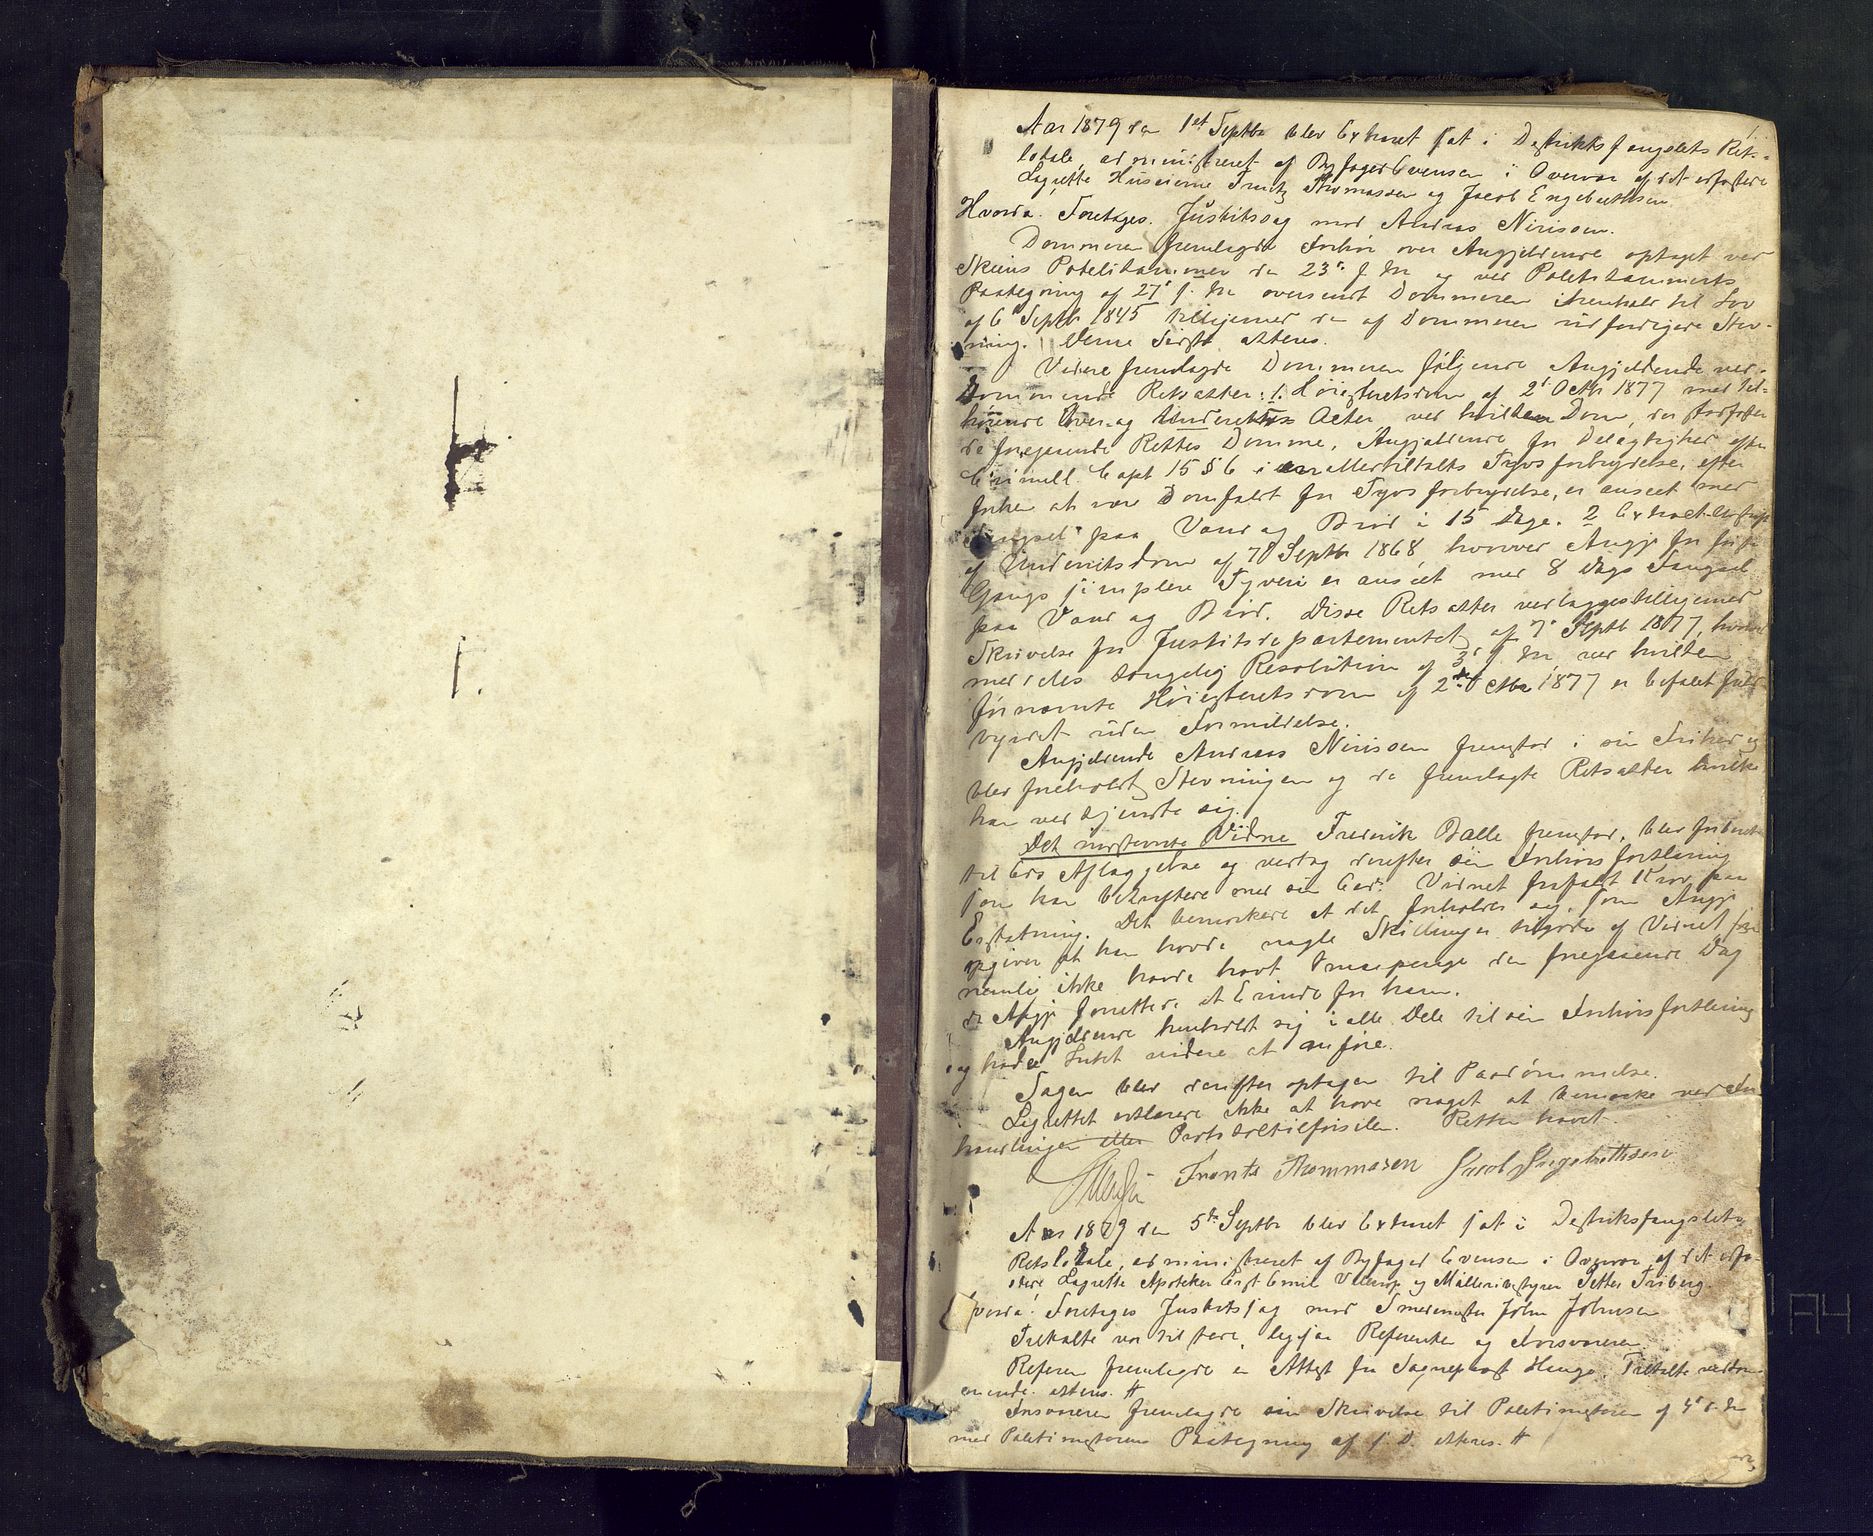 I.
1.
Aar 1879 den 1st Septbr blev Extraret sat i Destriktsfængslets Rets-
lokale, administreret af Byfoged Evensen i Overvær af det edfæstede
Lagrette Huseierne Frantz Thomassen og Jacob Engebrethsen
Hvorda: Foretoges Justitssag mod Andreas Nirisøn.
Dommeren fremlagde Forhør over Angjeldende optaget ved
Skiens Politikammer den 23de f. M. og ved Politikammerets
Paategning af 27de f. M. oversendt Dommeren i Henhold til Lov
af 6te Septbr 1845 tilligemed den af Dommeren udfærdigede Stev-
ning. Denne Sidste atteres.
Videre fremlagde Dommeren følgende Angjeldende ved-
kommende Retsakter: 1. Høiesteretsdom af 2de Octbr 1877 med til-
hørende Over- og Underrets Acter, ved hvilken Dom, der stadfæster
de foregaaende Retters Domme, Angjeldende for Delagtighed efter
Criminell. Capt 15 § 6 i en Medtiltalts Tyvsforbrydelse, efter
forhen at være Domfældt for Tyvsforbrydelse, er anseet med
Fængsel paa Vand og Brød i 15 Dage. 2 Extract Udskrift
af Underretsdom af 7de Septbr 1868, hvorved Angj. for første
Gangs simplere Tyveri er anseet med 8 Dags Fængsel
paa Vand og Brød. Disse Retsakter vedlagges tilligemed
Skrivelse fra Justitsdepartementet af 7de Septb 1877, hvorved
meddeles kongelig Resolution af 3de f. M, ved hvilken
førnævnte Høiesteretsdom af 2den Octbr 1877 er befalet fuld-
byrdet uden Formildelse.
Angjeldende Andreas Nirisøn fremstod i sin Frihed og
blev foreholdt Stevningen og de fremlagte Retsakter hvilke
han vedkjendte sig.
Det indstevnte Vidne Fredrik Balle fremstod, blev forberedt
til Eds Aflæggelse og vedtog derefter sin Forhørs forklaring
som han bekræftede med sin Eed. Vidnet frafaldt Krav paa
Erstatning. Det bemærkede at det forholder sig, som Angj.
opgiver at han havde nogle Skillinger tilgode af Vidnet
nemlig ikke havde havt Smaapenge den foregaaende Dag
da Angj. forrettede et Erinde for ham.
Angjeldende henholdt sig i alle Dele til sin Forhørsforklaring
og havde Intet videre at anføre.
Sagen blev derefter optagen til Paadømmelse.
Lagrettet erklærede ikke at have noget at bemærke ved For-
handlingen eller Protokoltilførselen. Retten hævet.
Frants Thommasen Jacob Engebrethsen
Aar 1879 den 5te Septbr blev Extraret sat i Destriktsfængslets
Retslokale, administreret af Byfoged Evensen i Overvær af det edfæ-
stede Lagrette Apotheker Emil og Møllerbestyrer Petter Friberg.
Hvorda: Foretoges Justitssag mod Smedmester John Johnsen
Tiltalte var tilstede, ligesaa Referenten og Forsvareren
Referen fremlagde en Attest fra Sogneprest Hauge Tiltalte vedkom-
mende. atteres. #
Forsvareren fremlagde sin Skrivelse til Politimesteren af 4de d. M
med Politimesterens Paategning af s. D. atteres. #